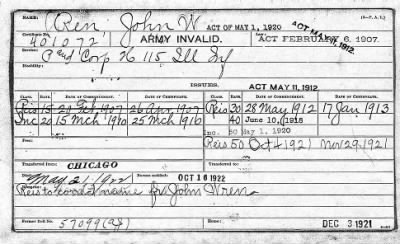 Name: Ren, John W. ACT OF MAY 1, 1920 ACT MAY 11, 1912.
Certificate No. 401072 ARMY INVALID. ACT FEBRUARY 6, 1907.
P and Corp H 115 Ill Inf
Disability:
ISSUES. ACT MAY 11, 1912
CLASS. RATE. DATE OF COMMENCEMENT. DATE OF CERTIFICATE. CLASS. RATE. DATE OF COMMENCEMENT. DATE OF CERTIFICATE.
Reis 15 21 Feb 1907 26 Apr 1907 Reis 30 28 May 1912 17 Jan 1913
Inc 20 15 Mch 25 Mch 1916 40 June 10, 1918
Inc. 50 May 1, 1920
Reis 50 Oct 4 1921 Nov 29, 1921
Transferred from: CHICAGO
May 21 1922 OCT 16 1922
Reis to correct name fr John Wrens
Former Roll No. 57099 Home: DEC 3 1921